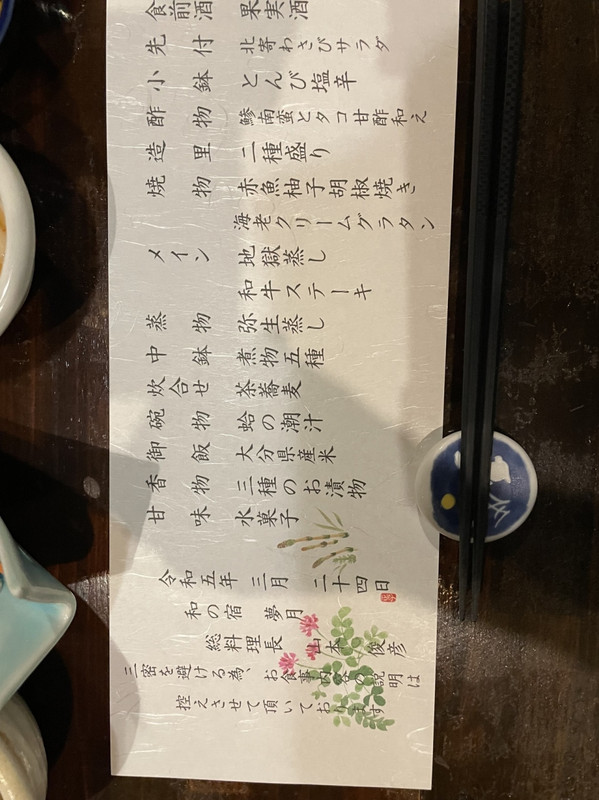 食前酒 果実酒
先付 北寄わさびサラダ
小鉢 とんび塩辛
酢物 鯵南蛮とタコ甘酢和え
造里 二種盛り
焼物 赤魚柚子胡椒焼き
海老クリームグラタン
メイン 地獄蒸し
和牛ステーキ
蒸物 弥生蒸し
中鉢 煮物五種
炊合せ 茶蕎麦
碗物 蛤の潮汁
御飯 大分県産米
香物 三種のお漬物
甘味 水菓子
令和五年 三月 二十四日
和の宿 夢月
総料理長 山本 俊彦
三密を避ける為、お食事内容の説明は
控えさせて頂いております